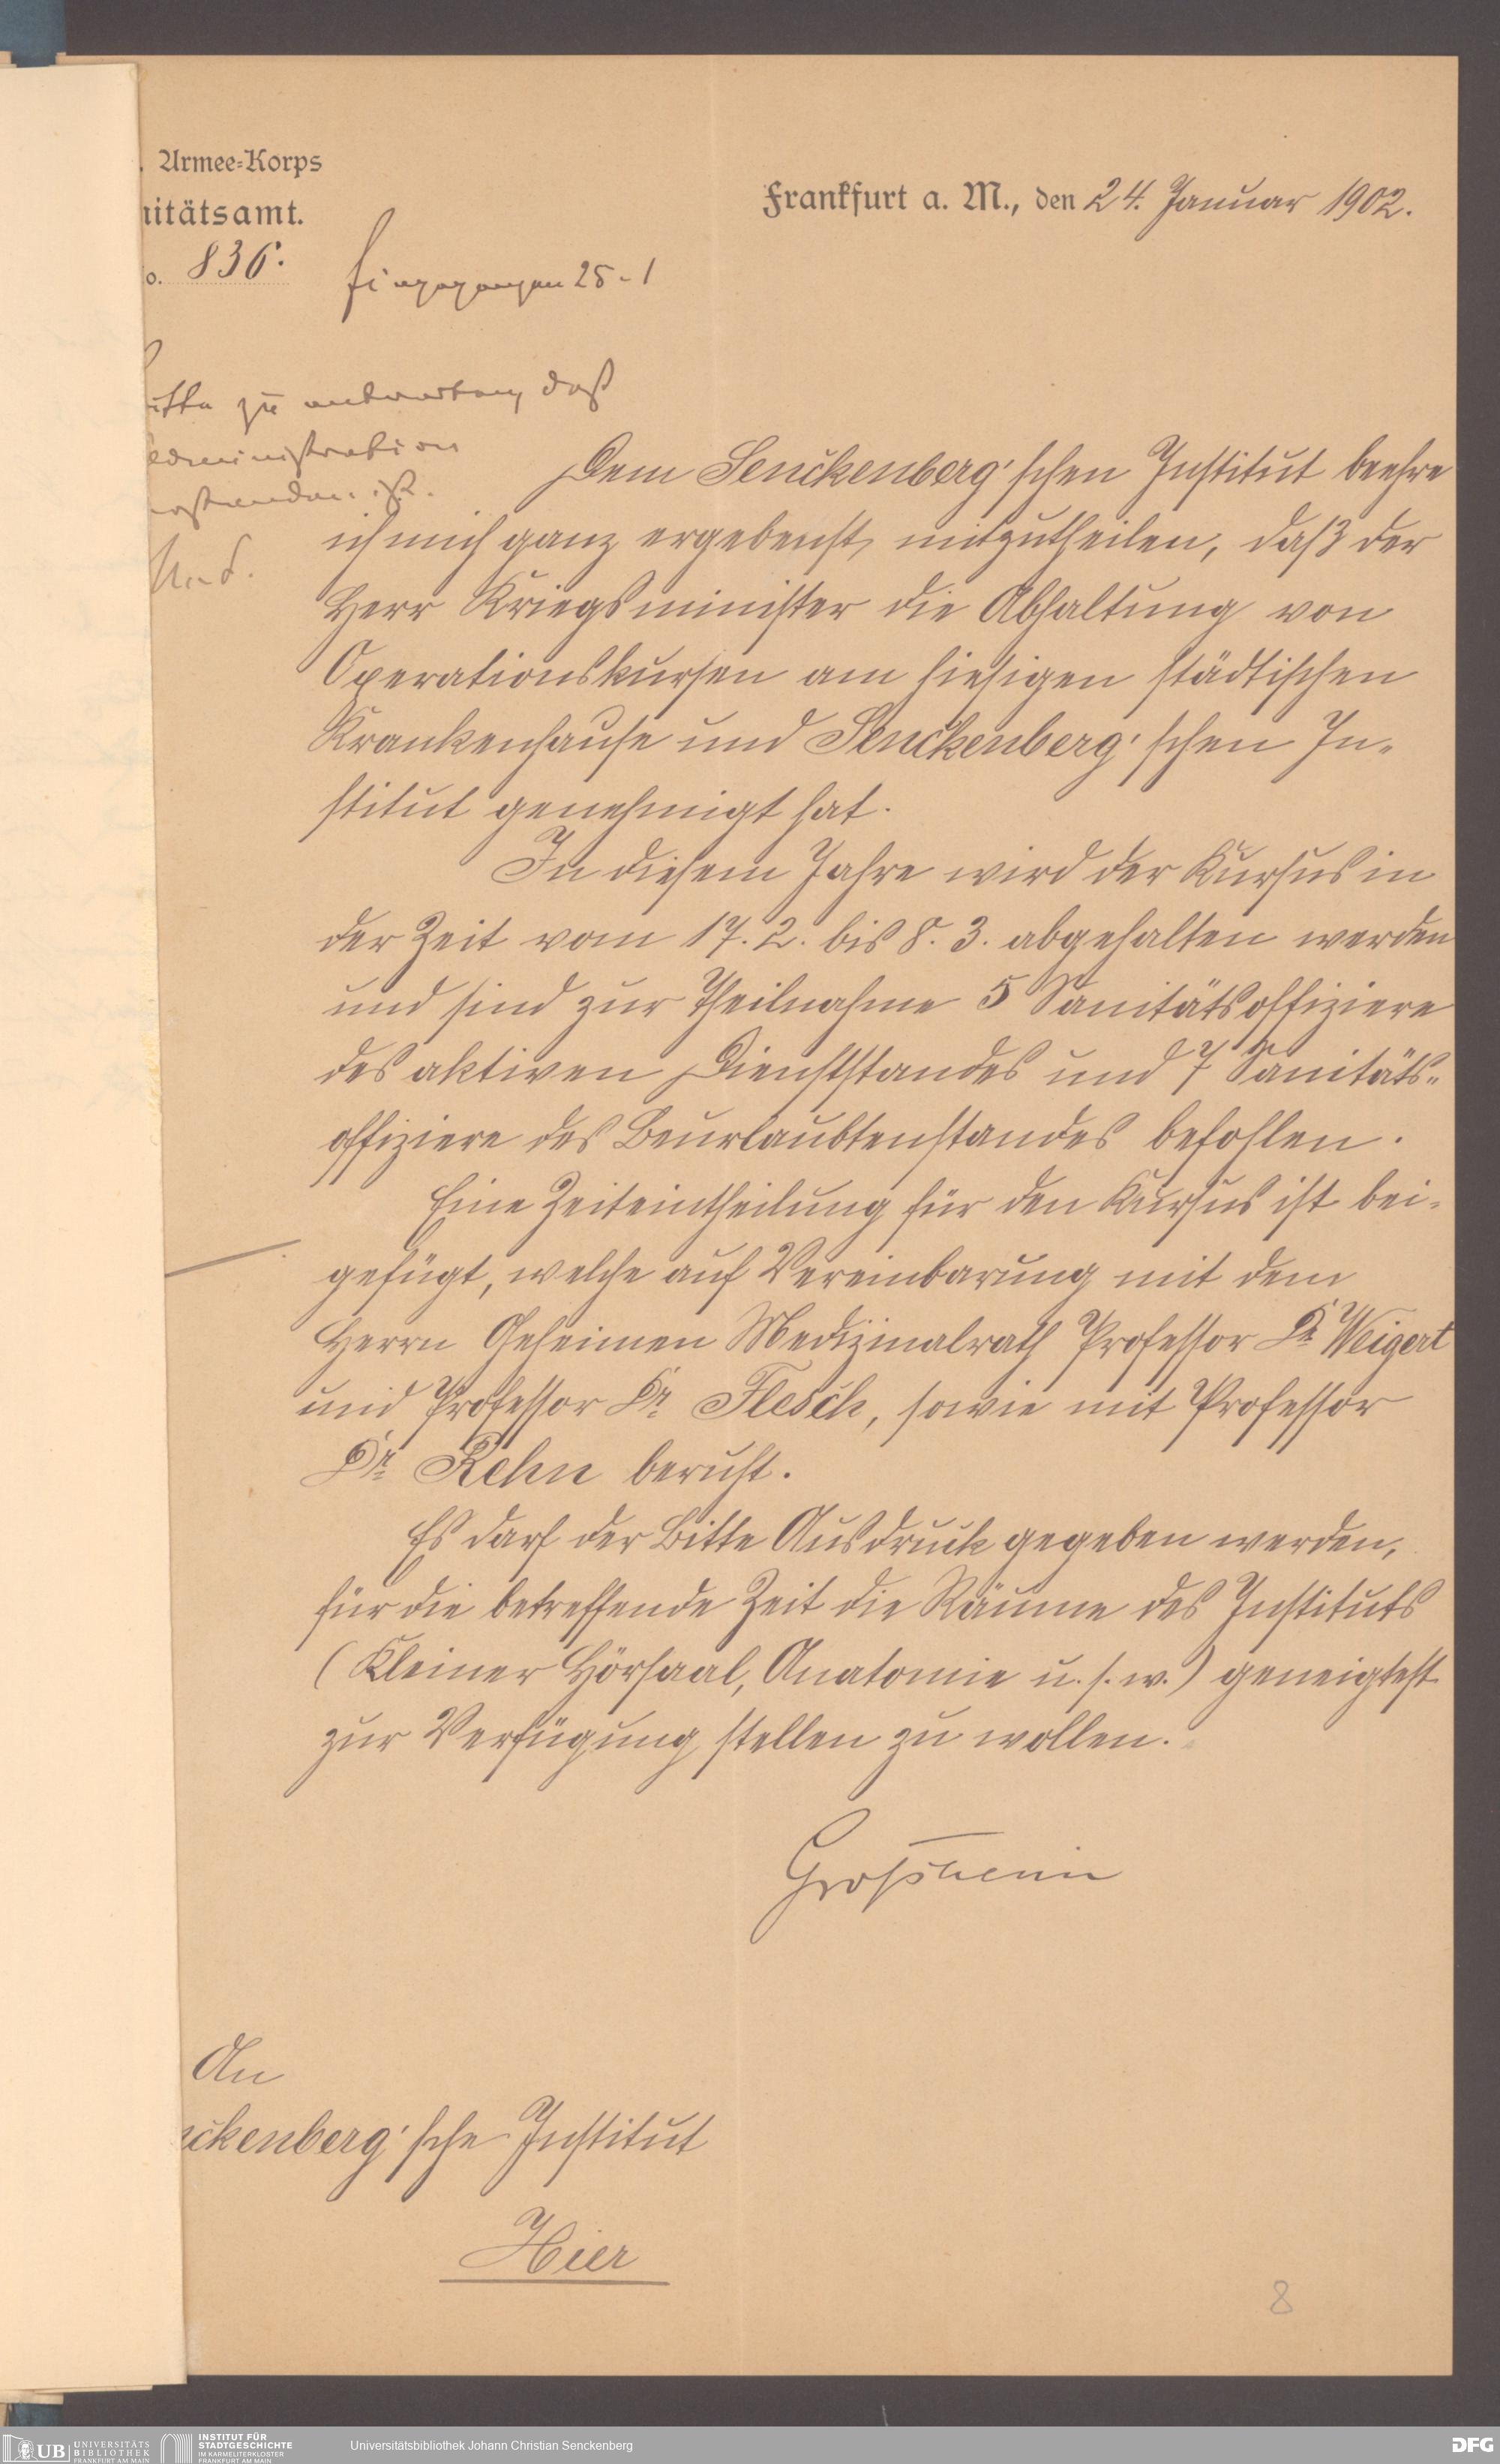 . Armee-Korps
nitätsamt.
o. 836.
Frankfurt a. M., den 24. Januar 1902.
Eingegangen 25-1
itte zu antworten daß
Administration
einverstanden ist.
Dem Senckenberg'schen Institut beehre
ich mich ganz ergebenst mitzutheilen, daß der
Herr Kriegsminister die Abhaltung von
Operationskursen am hiesigen städtischen
Krankenhause und Senckenberg'schen In-
stitut genehmigt hat.
In diesem Jahre wird der Kursus in
der Zeit vom 17. 2. bis 8. 3. abgehalten werden
und sind zur Theilnahme 5 Sanitätsoffiziere
des aktiven Dienststandes und 7 Sanitäts-
offiziere des Beurlaubtenstandes befohlen.
Eine Zeiteintheilung für den Kursus ist bei-
gefügt, welche auf Vereinbarung mit dem
Herrn Geheimen Medizinalrath Professor Dr Weigert
und Professor Dr Flesch, sowie mit Professor
Dr Rehn beruht.
Es darf der Bitte Ausdruck gegeben werden,
für die betreffende Zeit die Räume des Instituts
(Kleiner Hörsaal, Anatomie u. s. w.) geneigtest
zur Verfügung stellen zu wollen.
Großheim
An
nckenberg'sche Institut
Hier
8
UB UNIVERSITÄTS
BIBLIOTHEK
FRANKFURT AM MAIN
INSTITUT FÜR
STADTGESCHICHTE
IM KARMELITERKLOSTER
FRANKFURT AM MAIN
Universitätsbibliothek Johann Christian Senckenberg
DFG